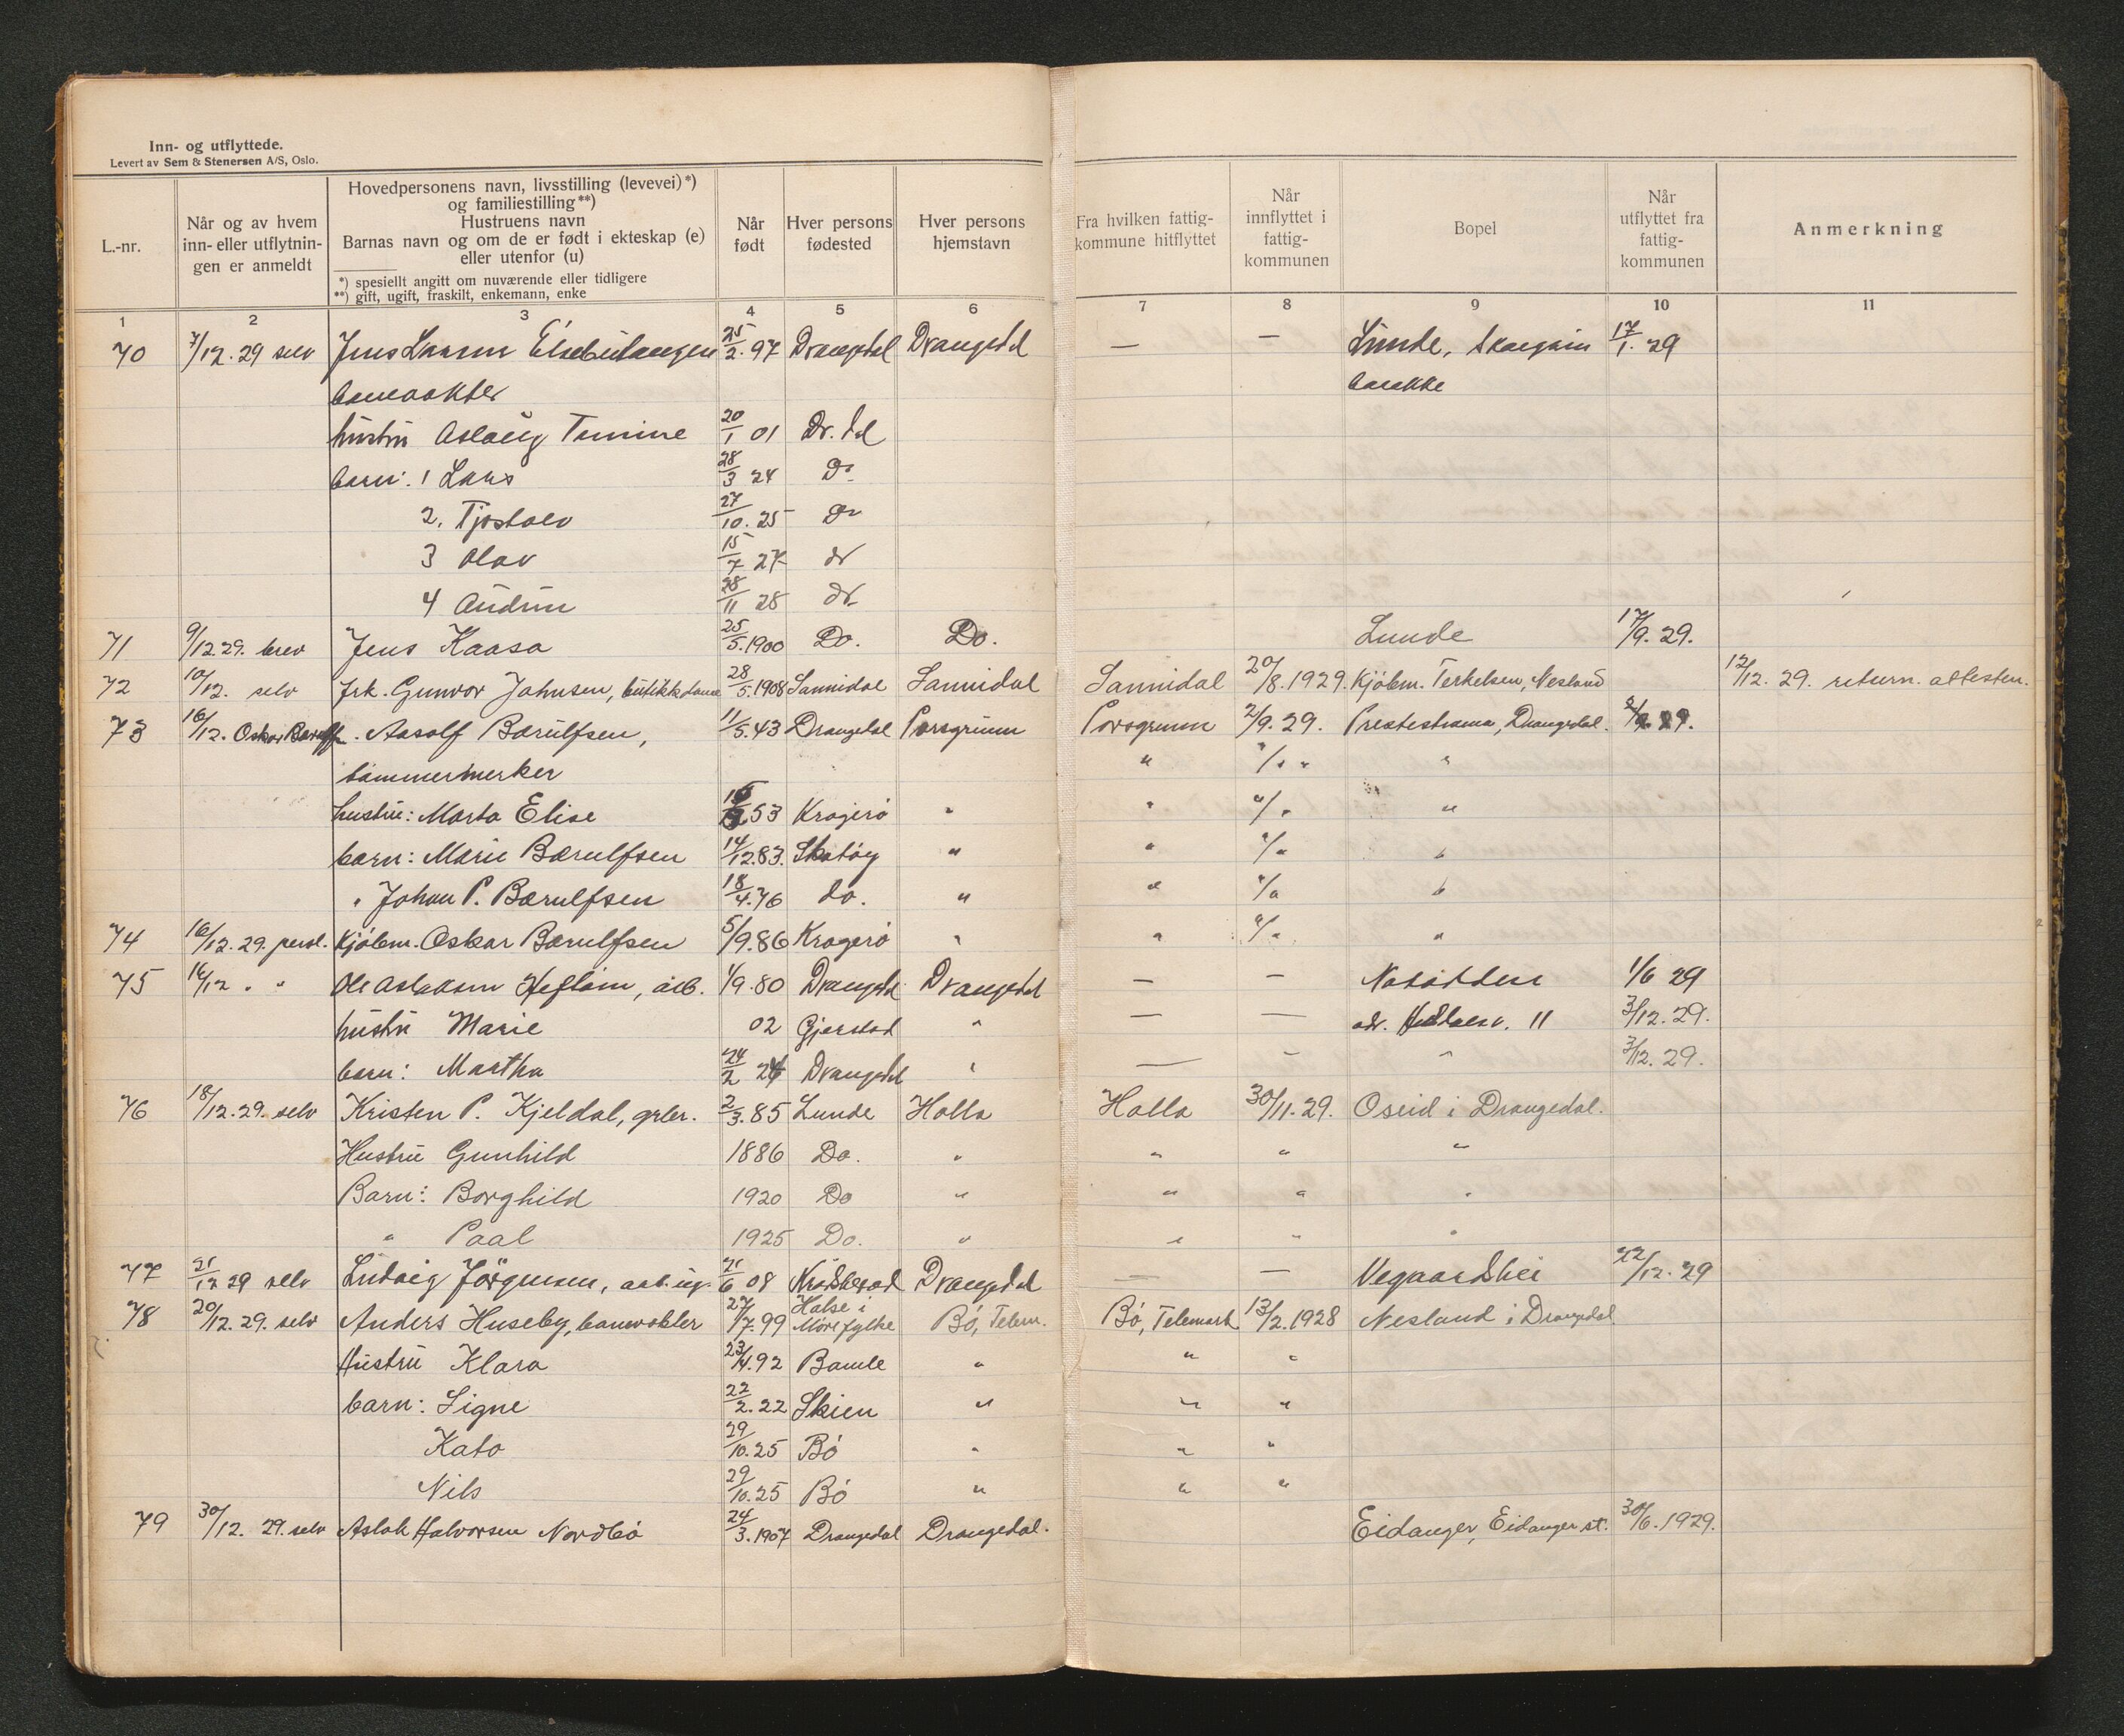 Inn- og utflyttede.
Levert av Sem & Stenersen A/S, Oslo.
L.-nr.
Når og av hvem inn- eller utflytnin- gen er anmeldt
Hovedpersonens navn, livsstilling (levevei)*)
og familiestilling**)
Hustruens navn
Barnas navn og om de er født i ekteskap (e)
eller utenfor (u)
*) spesiellt angitt om nuværende eller tidligere
**) gift, ugift, fraskilt, enkemann, enke
Når født
Hver persons fødested
Hver persons hjemstavn
Fra hvilken fattig- kommune hitflyttet
Når innflyttet i fattig- kommunen
Bopel
Når utflyttet fra fattig- kommunen
Anmerkning
1 2 3 4 5 6 7 8 9 10 11
70 7/12. 29 selv Jens Larsen 25/2. 97 Drangedal Drangedal — — Lunde, 17/1. 29
banevokter barakke
hustru Aslaug Tomine 20/1 01 Dr.dal
barn: 1 Lars 28/3 24 Do
2. Tjostolv 27/10. 25 Do
3 Olav 15/7 27 do
4 Audun 28/11 28 do
71 9/12. 29. brev Jens Kaasa 25/5. 1900 Do. Do. Lunde 17/9. 29.
72 10/12. selv Frk. Gunvor Johnsen, butikkdame 28/5. 1908 Sannidal Sannidal Sannidal 20/8. 1929. Kjøbm. Terkelsen, Nesland 12/12. 29. return. attesten.
73 16/12. Oskar Bærulfs. Aasolf Bærulfsen, 11/5. 43 Drangedal Porsgrunn Porsgrunn 2/9. 29. Prestestranna, Drangedal. 2/9. 29.
tømmermerker " "/" " "
hustru: Marta Elise 53 Kragerø " " "/" "
barn: Marie Bærulfsen 14/12. 83. Skatøy " " "/" "
" Johan P. Bærulfsen 18/4. 76 do. " " "/" "
74 16/12. 29. persl. Kjøbm. Oskar Bærulfsen 5/9. 86 Kragerø " " "/" "
75 16/12 " " Ole Aslaksen Heflom, arb. 1/9. 80 Drangedal Drangedal — — Notodden 1/6 29
hustru Marie 02 Gjerstad " — — adr. 11 3/12. 29.
barn: Martha 24/2 24 Drangedal " — — " 3/12. 29.
76 18/12. 29. selv Kristen P. Kjeldal, grbr. 2/3. 85 Lunde Holla Holla 30/11. 29. Oseid i Drangedal.
Hustru Gunhild 1886 Do. " " " "
Barn: Borghild 1920 Do " " " "
" Paal 1925 Do. " " " "
77 21/12 29 selv Ludvig Jörgensen, arb. ug. 21/6 08 Krødsherad Drangedal — — Vegaardshei 22/12. 29
78 20/12. 29. selv Anders Huseby, banevokter 27/7. 99 Halse i Møre fylke Bø, Telem. Bø, Telemark 13/2. 1928 Nesland i Drangedal
Hustru Klara 23/4. 92 Bamle " " "
barn: Signe 22/2. 22 Skien " " "
Kato 29/10. 25 Bø " " "
Nils 29/10. 25 Bø " " "
79 30/12. 29. selv Aslak Halvorsen Nordbø 24/3. 1907 Drangedal Drangedal. Eidanger, Eidanger st. 30/6. 1929.